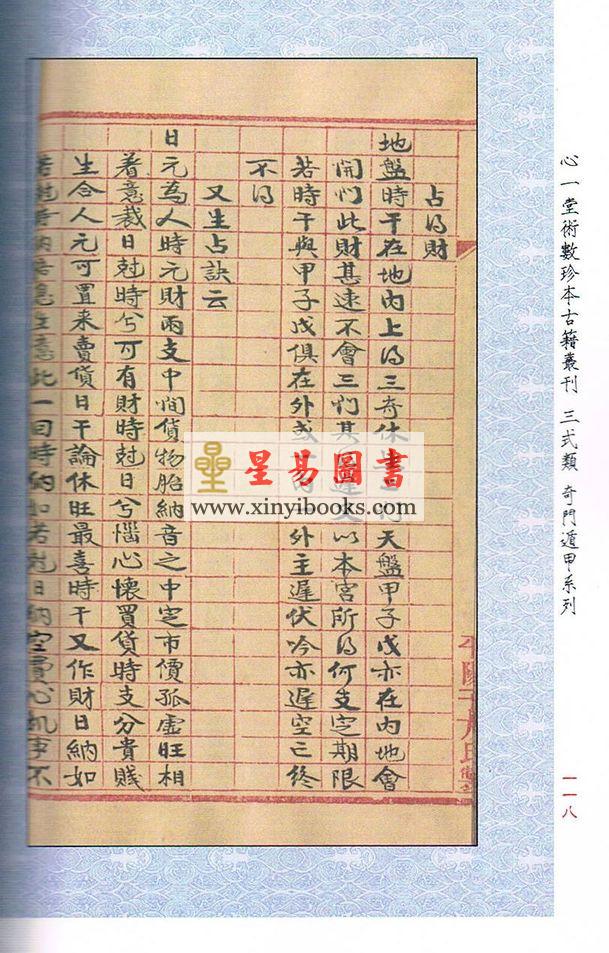 心一堂術數珍本古籍叢刊 三式類 奇門遁甲系列
一一八
占得財
地盤時干在地內上得三奇休 天盤甲子戊亦在內地會
開門此財甚速不會三門其 以本宮所得何支定期限
若時干與甲子戊俱在外或 外主遲伏吟亦遲空亡終
不得
又生占訣云
日元為人時元財兩支中間貨物胎納音之中定市價孤虛旺相
着意裁日尅時兮可有財時尅日兮惱心懷買貨時支分貴賤
生合人元可置来賣貨日干論休旺最喜時干又作財日納如
若尅時納 生意此一回時納如若尅日納空費心机事不
星易圖書
www.xinyibooks.com